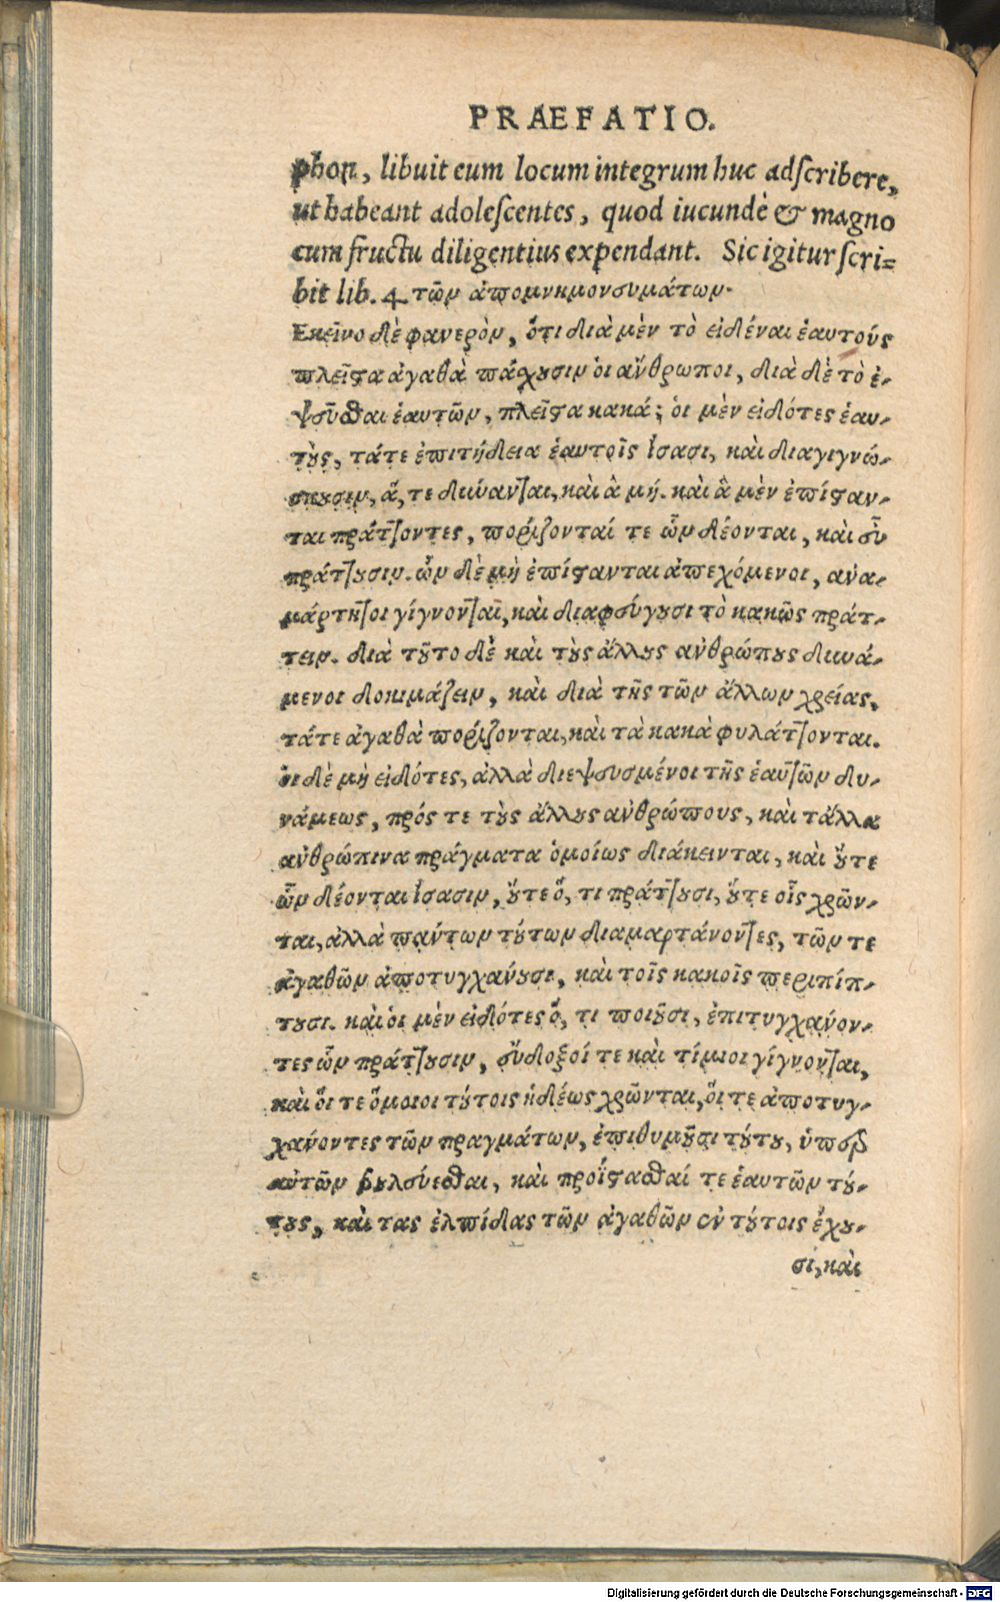 PRAEFATIO.
phon, libuit eum locum integrum huc adſcribere,
ut habeant adoleſcentes, quod iucundè & magno
cum fructu diligentius expendant. Sic igitur ſcri=
bit lib. 4. τῶν ἀπομνημονευμάτων.
Ἐκεῖνο δὲ φανερὸν, ὅτι διὰ μὲν τὸ εἰδέναι ἑαυτούς
πλεῖστα ἀγαθὰ πάσχουσιν οἱ ἄνθρωποι, διὰ δὲ τὸ ἐ-
ψεῦσθαι ἑαυτῶν, πλεῖστα κακά; οἱ μὲν εἰδότες ἑαυ-
τοὺς, τά τε ἐπιτήδεια ἑαυτοῖς ἴσασι, καὶ διαγιγνώ-
σκουσιν, ἅ, τε δύνανται, καὶ ἃ μή. καὶ ἃ μὲν ἐπίσταν-
ται πράττοντες, πορίζονταί τε ὧν δέονται, καὶ εὖ
πράττουσιν. ὧν δὲ μὴ ἐπίστανται ἀπεχόμενοι, ἀνα-
μάρτητοι γίγνονται, καὶ διαφεύγουσι τὸ κακῶς πράτ-
τειν. διὰ τοῦτο δὲ καὶ τοὺς ἄλλους ἀνθρώπους δυνά-
μενοι δοκιμάζειν, καὶ διὰ τῆς τῶν ἄλλων χρείας,
τά τε ἀγαθὰ πορίζονται, καὶ τὰ κακὰ φυλάττονται.
οἱ δὲ μὴ εἰδότες, ἀλλὰ διεψευσμένοι τῆς ἑαυτῶν δυ-
νάμεως, πρός τε τοὺς ἄλλους ἀνθρώπους, καὶ τἄλλα
ἀνθρώπινα πράγματα ὁμοίως διάκεινται, καὶ οὔτε
ὧν δέονται ἴσασιν, οὔτε ὅ, τι πράττουσι, οὔτε οἷς χρῶν-
ται, ἀλλὰ πάντων τούτων διαμαρτάνοντες, τῶν τε
ἀγαθῶν ἀποτυγχάνουσι, καὶ τοῖς κακοῖς περιπίπ-
τουσι. καὶ οἱ μὲν εἰδότες ὅ, τι ποιοῦσι, ἐπιτυγχάνον-
τες ὧν πράττουσιν, εὔδοξοί τε καὶ τίμιοι γίγνονται,
καὶ οἵ τε ὅμοιοι τούτοις ἡδέως χρῶνται, οἵ τε ἀποτυγ-
χάνοντες τῶν πραγμάτων, ἐπιθυμοῦσι τούτου, ὑπὲρ
αὐτῶν βουλεύεσθαι, καὶ προΐστασθαί τε ἑαυτῶν τού-
τους, καὶ τας ἐλπίδας τῶν ἀγαθῶν ἐν τούτοις ἔχου-
σι, καὶ
Digitalisierung gefördert durch die Deutsche Forschungsgemeinschaft - DFG